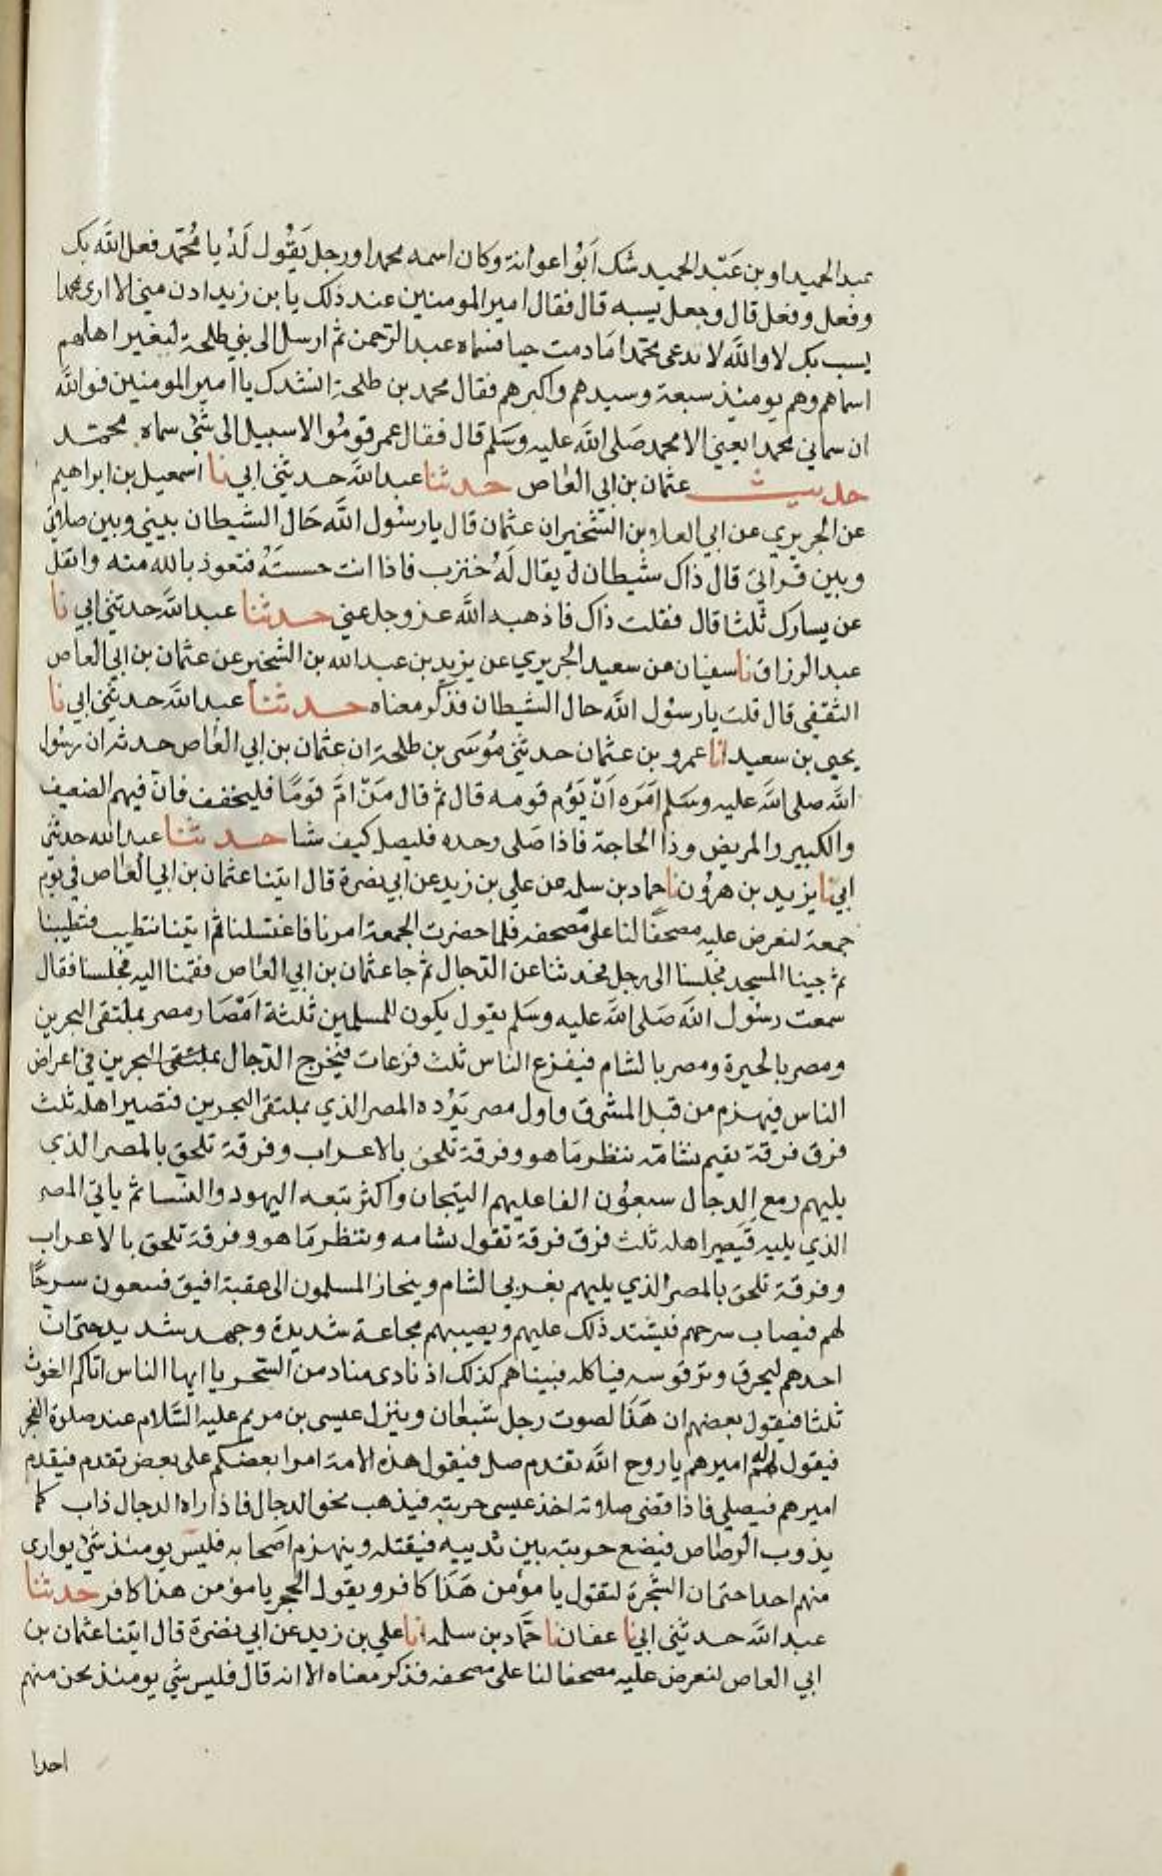 عبد الحميد او بن عَبْد الحميد شك اَبُوا عوانة وكان اسمه محمدا ورجل يَقُول لَهُ يا مُحَمّد فعل الله بك
وفعل وفعل قال وجعل يسبه قال فقال امير المومنين عند ذلك يا بن زيد ادن مني الا ارى محمدا
يسب بك لا والله لا تدعى محمدا مَا دمت حيا فسماه عبد الرحمن ثم ارسل الى بني طلحة ليغير اهلهم
اسماهم وهم يومئذ سبعة وسيدهم واكبرهم فقال محمد بن طلحة انشدك يا امير المومنين فوالله
ان سماني محمدا يعني الا محمد صَلى الله عليه وسَلم قال فقال عمر قومُوا لا سبيل الى شئ سماه محمّد
حديث عثمان بن ابي العاص حدثنا عبد الله حدثني ابي نا اسمعيل بن ابراهيم
عن الجريري عن ابي العلا بن الشخير ان عثمان قال يا رسُول الله حَال الشيطان بيني وبين صلاتي
وبين قراتي قال ذاك شيطان يقال لَهُ خنزب فاذا انت حسسته فتعوذ بالله منه واتفل
عن يسارك ثلثا قال ففعلت ذاك فاذهبه الله عز وجل عني حدثنا عبد الله حدثني ابي نا
عبد الرزاق نا سفيان عن سعيد الجريري عن يزيد بن عبد الله بن الشخير عن عثمان بن ابي العاص
الثقفي قال قلت يا رسُول الله حال الشيطان فذكر معناه حدثنا عبد الله حدثني ابي نا
يحيى بن سعيد انا عمرو بن عثمان حدثني مُوسَى بن طلحة ان عثمان بن ابي العاص حدثه ان رسُول
الله صلى الله عليه وسَلم اَمَره اَنْ يَؤم قومه قال ثم قال مَنْ امّ قومًا فليخفف فان فيهم الضعيف
والكبير والمريض وذا الحاجة فاذا صَلى وحده فليصل كيف شا حدثنا عبد الله حدثني
ابي نا يزيد بن هرُون نا حماد بن سلمه عن علي بن زيد عن ابي نضرة قال اتينا عثمان بن ابي العاص في يوم
جمعة لنعرض عليه مصحفًا لنا على مصحفه فلما حضرت الجمعة امرنا فاغتسلنا ثم اتينا نتطيب فتطيبنا
ثم جينا المسجد فجلسنا الى رجل فحدثنا عن الدجال ثم جا عثمان بن ابي العاص فقمنا اليه فجلسنا فقال
سمعت رسُول الله صَلى الله عليه وسَلم يقول يكون للمسلمين ثلثة امْصَار مصر بملتقى البحرين
ومصر بالحيرة ومصر بالشام فيفزع الناس ثلث فزعات فيخرج الدجال بملتقى البحرين في اعراض
الناس فيهزم من قبل المشرق فاول مصر يَرُده المصر الذي بملتقى البحرين فتصير اهله ثلث
فرق فرقة تقيم نشامّه ننظر مَا هو وفرقة تلحق بالاعراب وفرقة تلحق بالمصر الذي
يليهم ومع الدجال سبعُون الفا عليهم التيجان واكثر تبعه اليهود والنسا ثم ياتي المصر
الذي يليه فيَصير اهله ثلث فرق فرقة تقول نشامه وننظر مَا هو وفرقة تلحق بالاعراب
وفرقة تلحق بالمصر الذي يليهم بغربي الشام وينحاز المسلمون الى عقبة افيق فيبعون سرحًا
لهم فيصاب سرحهم فيشتد ذلك عليهم ويصيبهم مجاعة شديدة وجهد شديد حتى ان
احدهم ليحرق وتر قوسه فياكله فبيناهم كذلك اذ نادى مناد من السحر يا ايها الناس اتاكم الغوث
ثلثا فيقول بعضهم ان هَذا لصوت رجل شبعان وينزل عيسى بن مريم عليه السّلام عند صلوة الفجر
فيقول له اميرهم يا روح الله تقدم صل فيقول هذه الامة امرا بعضكم على بعض تقدم فيقدم
اميرهم فيصلي فاذا قضى صلاته اخذ عيسى حربته فيذهب نحو الدجال فاذا راه الدجال ذاب كما
يذوب الرصاص فيضع حربته بين ثدييه فيقتله وينهزم اصحابه فليس يومئذ شئ يوارى
منهم احدا حتى ان الشجرة لتقول يا مؤمن هَذا كافر ويقول الحجر يا مؤمن هذا كافر حدثنا
عبد الله حدثني ابي نا عفان نا حَمّاد بن سلمه انا علي بن زيد عن ابي نضرة قال اتينا عثمان بن
ابي العاص لنعرض عليه مصحفا لنا على مصحفه فذكر معناه الا انه قال فليس شي يومئذ يجن منهم
احدا